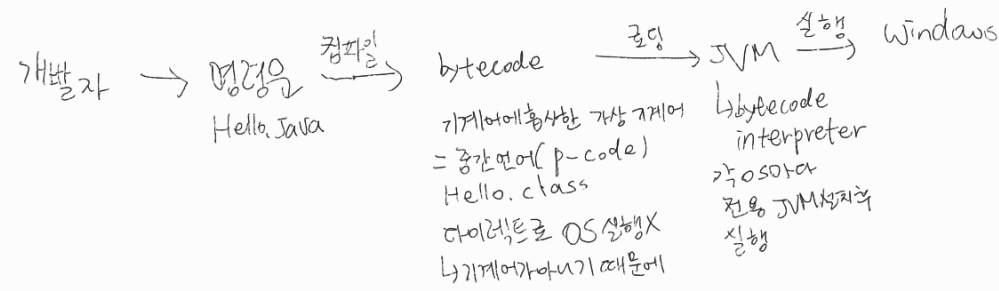 개발자 → 명령문 컴파일 → bytecode 로딩 → JVM 실행 → Windows
Hello.Java
기계어에 흡사한 가상 기계어
= 중간언어(p-code)
Hello.class
다이렉트로 OS 실행X
↳기계어가 아니기 때문에
↳bytecode
interpreter
각 OS마다
전용 JVM설치후
실행